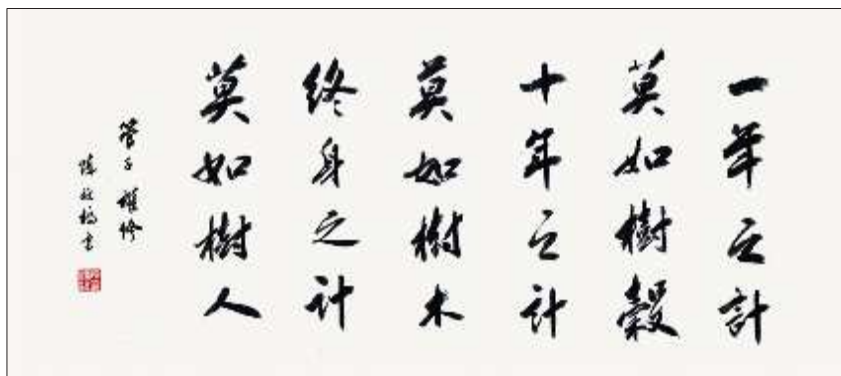 一年之計
莫如樹穀
十年之計
莫如樹木
終身之計
莫如樹人
管子 權修
書